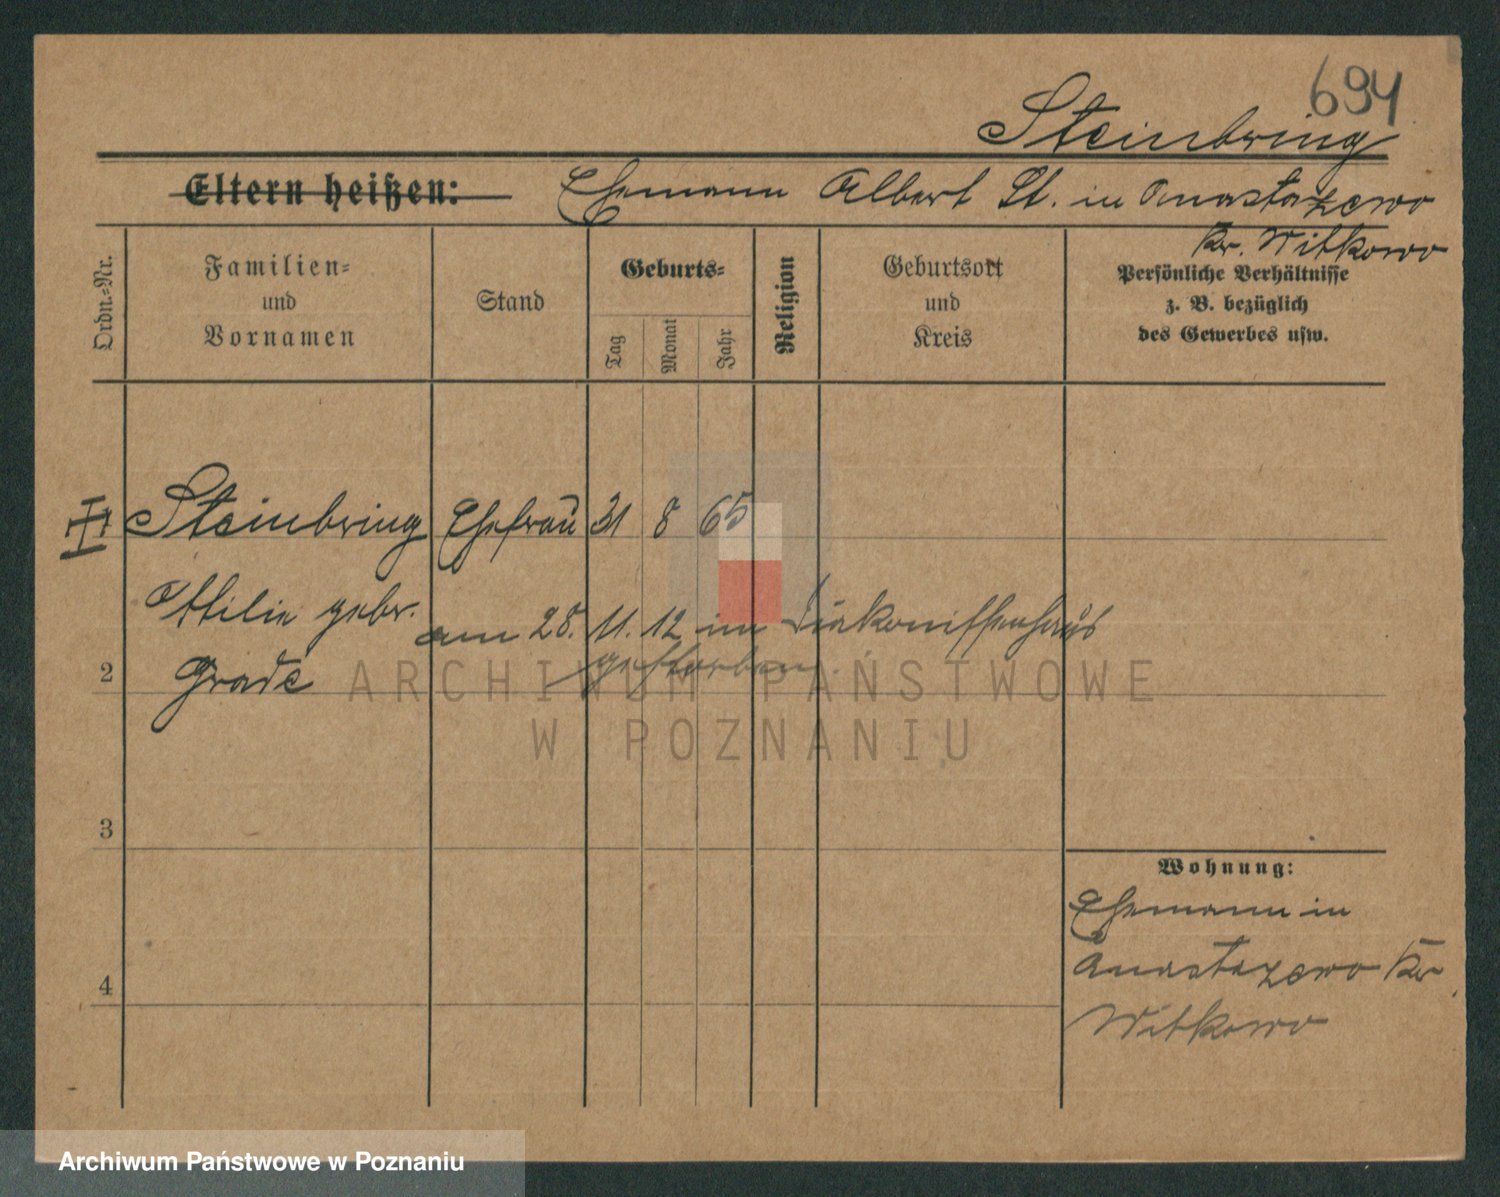 694
Steinbring
Eltern heißen: Ehemann Albert St. in Anastazewo
Kr. Witkowo
Ordn.-Nr.
Familien-
und
Vornamen
Stand
Geburts-
Tag
Monat
Jahr
Religion
Geburtsort
und
Kreis
Persönliche Verhältnisse
z. B. bezüglich
des Gewerbes usw.
Steinbring Ehefrau 31 8 65
Ottilie gebr.
am 28. 11. 12 im Diakonissenhaus
gestorben.
2 Grade
ARCHIWUM PAŃSTWOWE
W POZNANIU
3
Wohnung:
Ehemann in
Anastazewo Kr
4
Witkowo
Archiwum Państwowe w Poznaniu